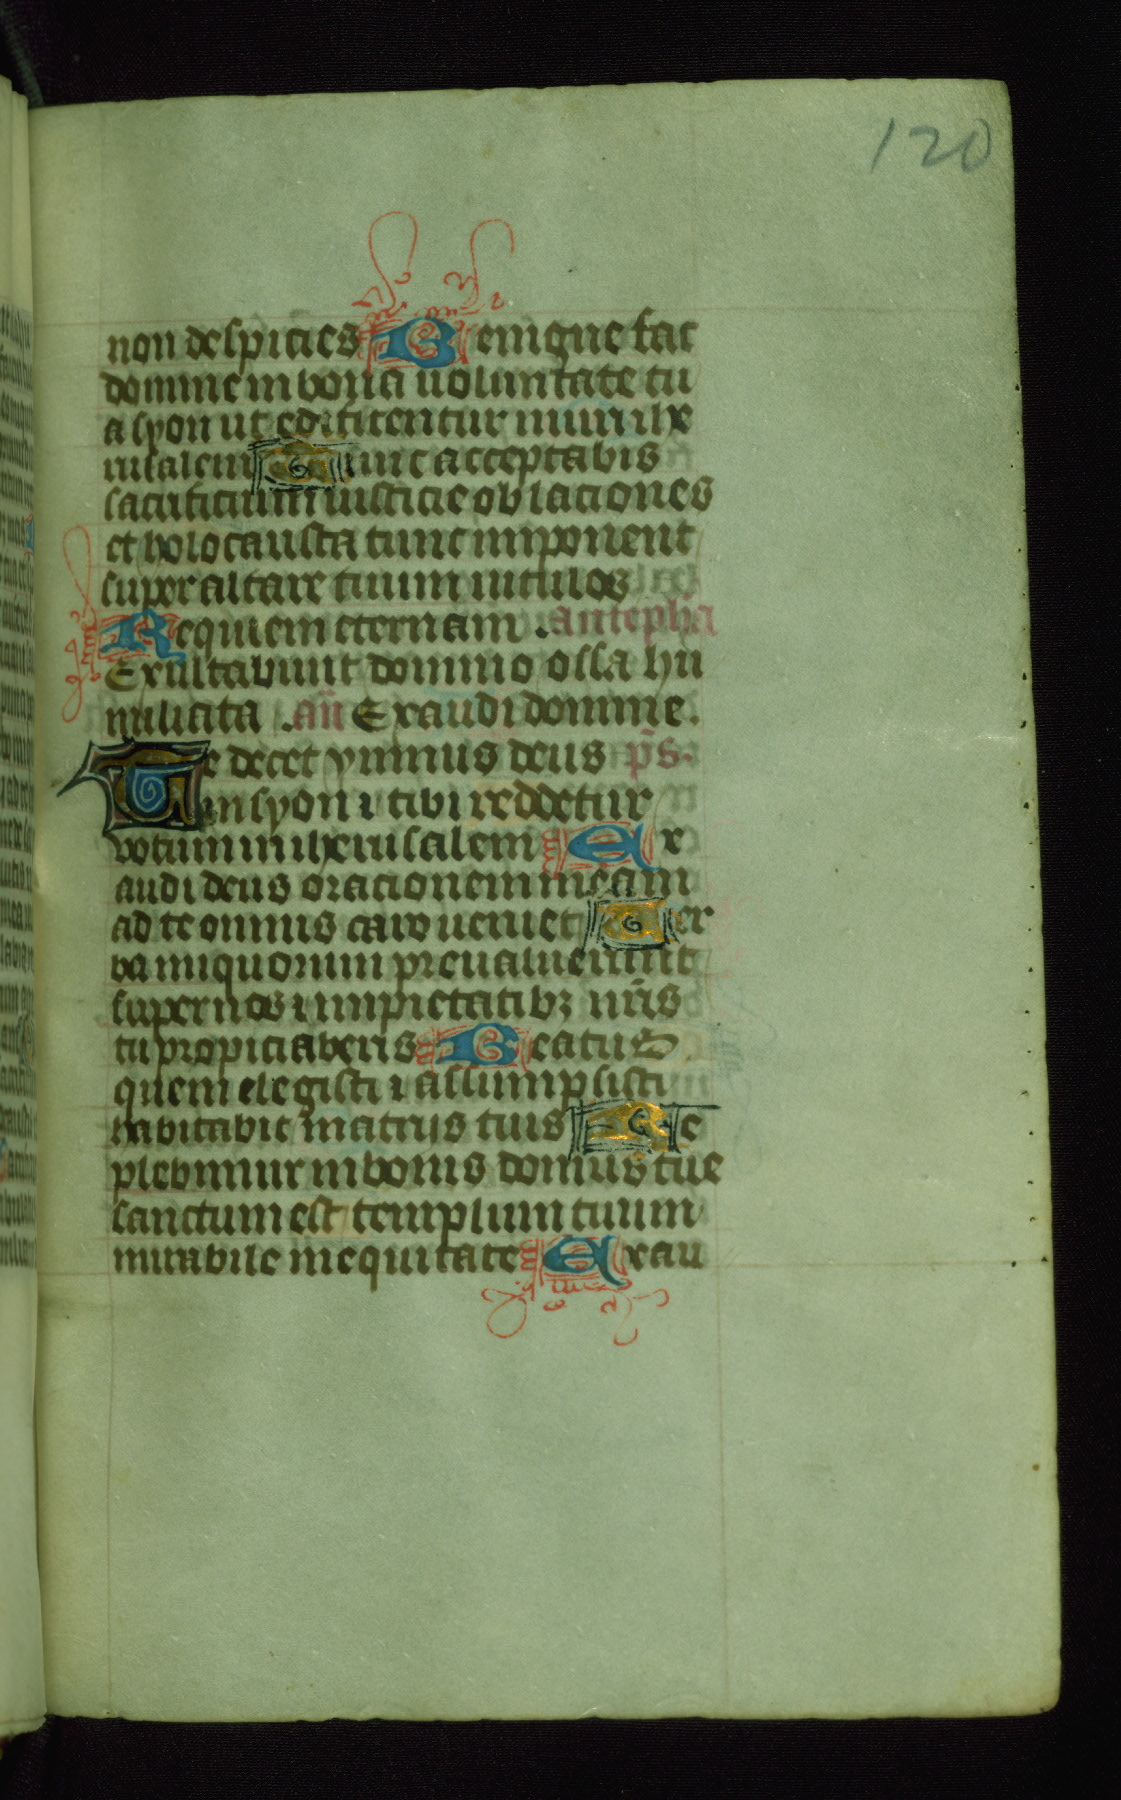 120
non despicies Benigne fac
domine in bona uoluntate tu
a syon ut edificentur muri ihe
rusalem Tunc acceptabis
sacrificium iusticie oblaciones
et holocausta tunc imponent
super altare tuum uitulos
Requiem eternam . antepha
Exultabunt domino ossa hu
miliata . an̄ Exaudi domine.
Te decet ymnus deus ps̄.
in syon ⁊ tibi reddetur
votum in iherusalem Ex
audi deus oracionem meam
ad te omnis caro ueniet Uer
ba iniquorum preualuerunt
super nos ⁊ impietatibꝫ nr̄is
tu propiciaberis Beatus
quem elegisti ⁊ assumpsisti
habitabit in atrijs tuis Re
plebimur in bonis domus tue
sanctum est templum tuum
mirabile in equitate Exau